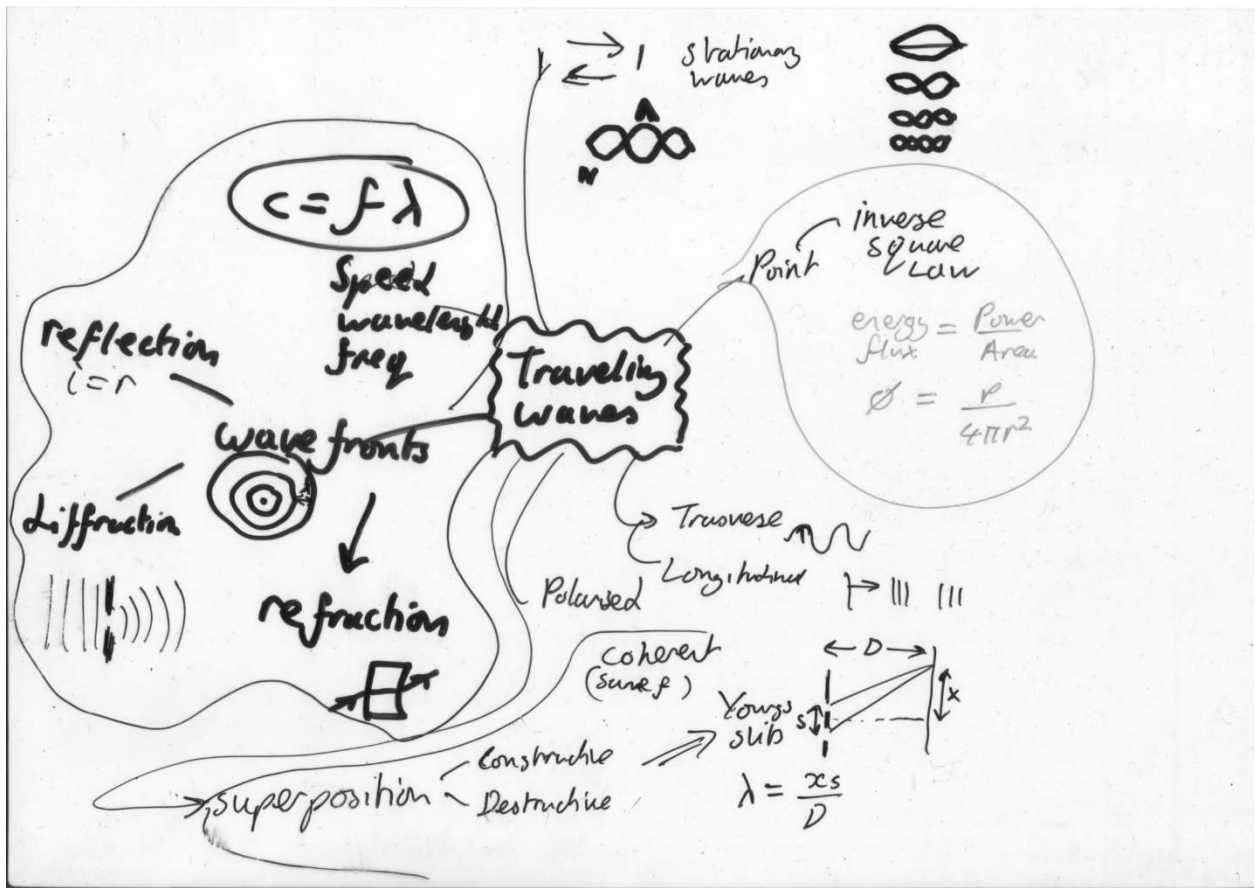 stationary
waves
A
N
c = f λ
Speed
wavelenght
freq
reflection
i = r
wave fronts
diffraction
refraction
Traveling
waves
Point
inverse
square
Law
energy
flux
=
Power
Area
Ø = P
4πr²
Trasverse
Longitudinal
Polarised
coherent
(same f)
Youngs
slits
D
s
x
λ = xs
D
superposition
Constructive
Destructive